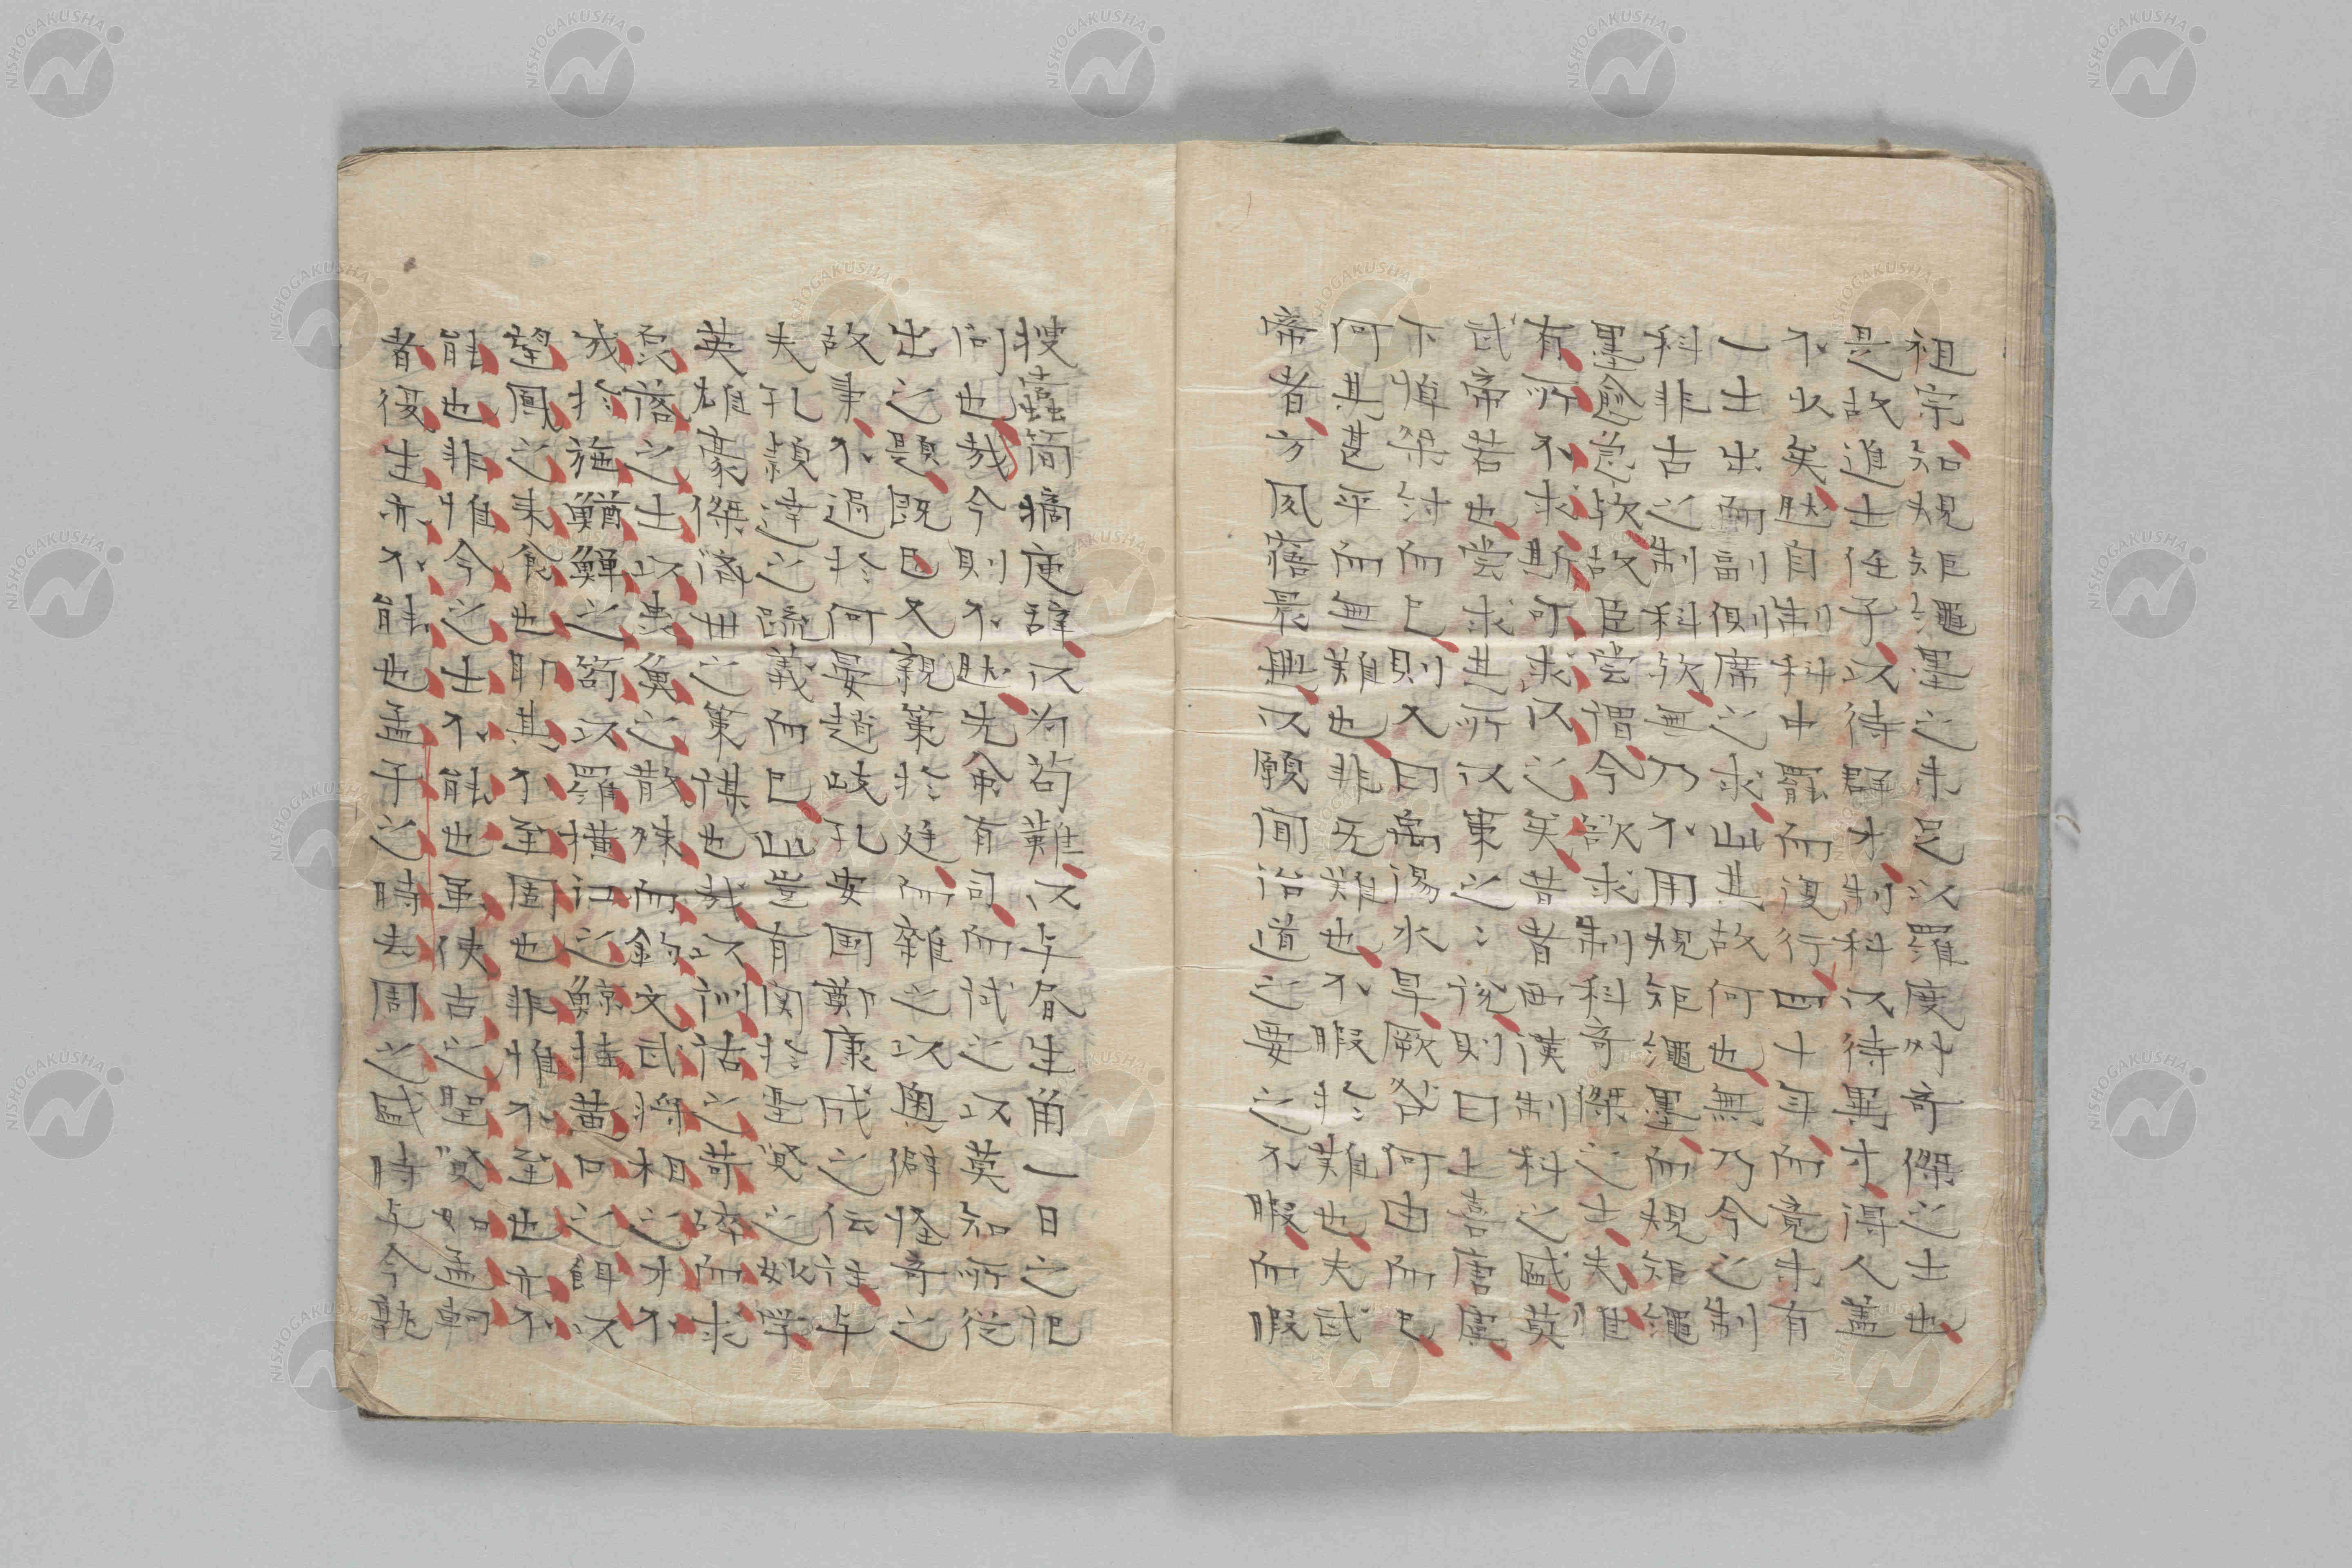 祖宗知規矩縄墨之未足以羅度外奇傑之士也
是故進士任子以待群才制科以待異才得人盖
不少矣然自制科中罷而復行四十年而竟未有
一士出而副側席之求此其故何也無乃今之制
科非古之制科欤無乃不用規矩縄墨而規矩縄
墨愈急欤故臣嘗謂今欲求制科奇傑之士夫惟
有所不求斯可求以之矣昔者西漢制科之盛莫
武帝若也嘗求其所以策之之説則曰上喜唐虞
下悼桀紂而已則又曰禹湯水旱厥咎何由而已
何其甚平而無難也非无難也不暇於難也夫武
帝者方夙寤晨興以願聞治道之要之不暇而暇
搜蠹簡摘庾辞以为苟難以与眉生角一日之
问也哉今則不然先命有司而試之以莫知所従
出之題既已又親策於廷而雜之以奥僻怪奇之
故事不過於何晏趙岐孔安国鄭康成之伝註与
夫孔穎達之疏義而已此豈有関於聖賢之妙学
英雄豪傑済世之策謀也哉以訓詁之苛碎而求
磊落之士以虫魚之散殊而釣文武将相之才不
幾於施鰌鱓之笱以羅横江之鯨挂黄口之餌以
望鳳之来食也耶其不至固也非惟不至也亦不
能也非惟今之士不能也虽使古之聖賢如孟軻
者復生亦不能也孟子之時去周之盛時与今孰